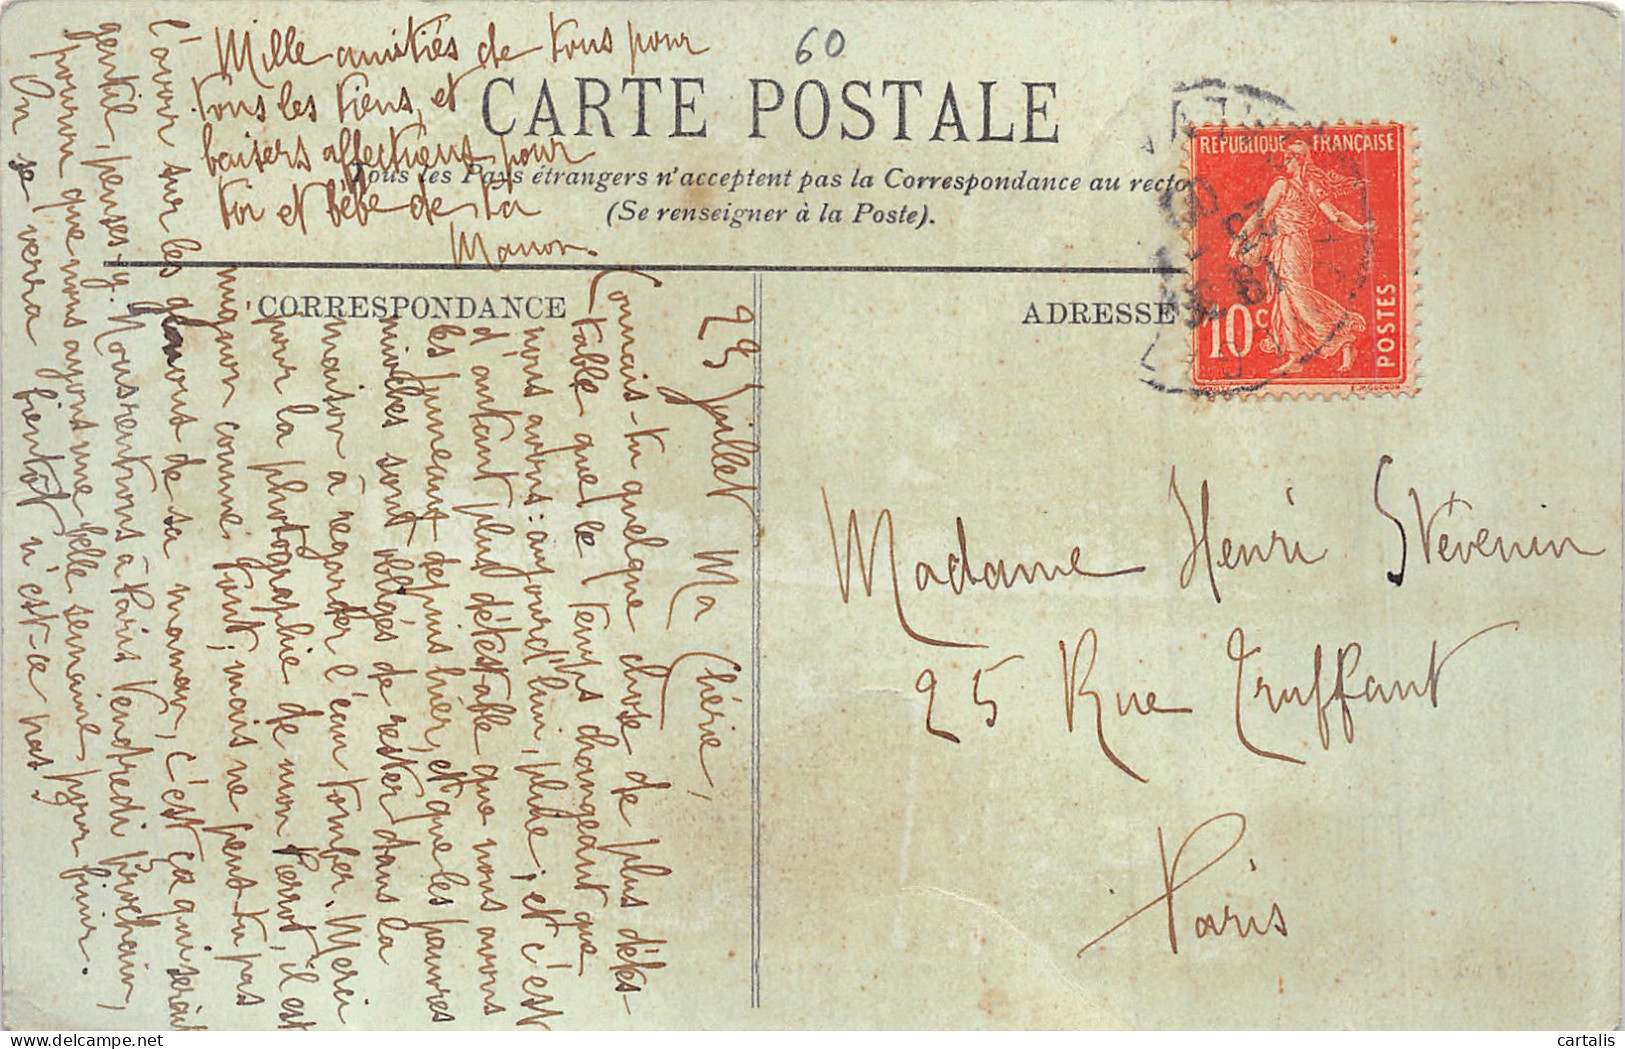 60
CARTE POSTALE
Tous les Pays étrangers n'acceptent pas la Correspondance au recto
(Se renseigner à la Poste).
CORRESPONDANCE
ADRESSE
REPUBLIQUE FRANÇAISE
10c
POSTES
Madame Henri Stévenin
25 Rue Truffaut
Paris
23 Juillet Ma Chérie,
Connais-tu quelque chose de plus détes-
table que le temps changeant que
nous avons: aujourd'hui, pluie; et c'est
d'autant plus détestable que nous avons
les jumeaux depuis hier, et que les pauvres
mioches sont obligés de rester dans la
maison à regarder l'eau tomber. Merci
pour la photographie de mon Pierrot, il est
mignon comme tout; mais ne peux tu pas
l'avoir sur les genoux de sa maman, c'est ça qui serait
gentil, penses-y. Nous rentrons à Paris Vendredi prochain,
pourvu que nous ayons une belle semaine pour finir.
On se verra bientôt n'est-ce pas?
Mille amitiés de tous pour
tous les tiens, et
baisers affectueux pour
toi et bébé de ta
Manon
cartalis